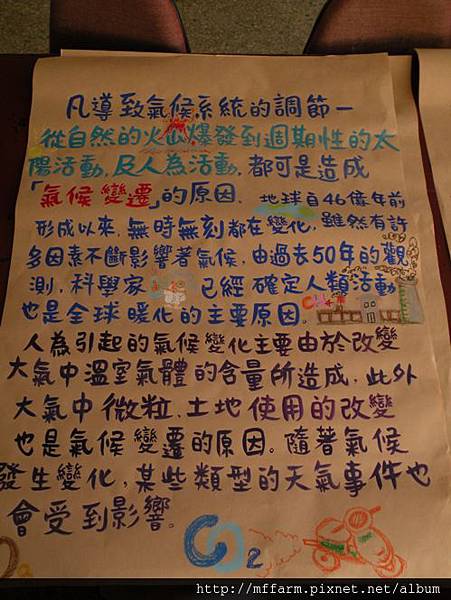 凡導致氣候系統的調節一
從自然的火山爆發到週期性的太
陽活動,及人為活動,都可是造成
「氣候變遷」的原因.地球自46億年前
形成以來,無時無刻都在變化,雖然有許
多因素不斷影響著氣候,由過去50年的觀
測,科學家已經確定人類活動
也是全球暖化的主要原因。
CH4
人為引起的氣候變化主要由於改變
大氣中溫室氣體的含量所造成,此外
大氣中微粒.土地使用的改變
也是氣候變遷的原因。隨著氣候
發生變化,某些類型的天氣事件也
會受到影響。
CO2
http://mffarm.pixnet.net/album